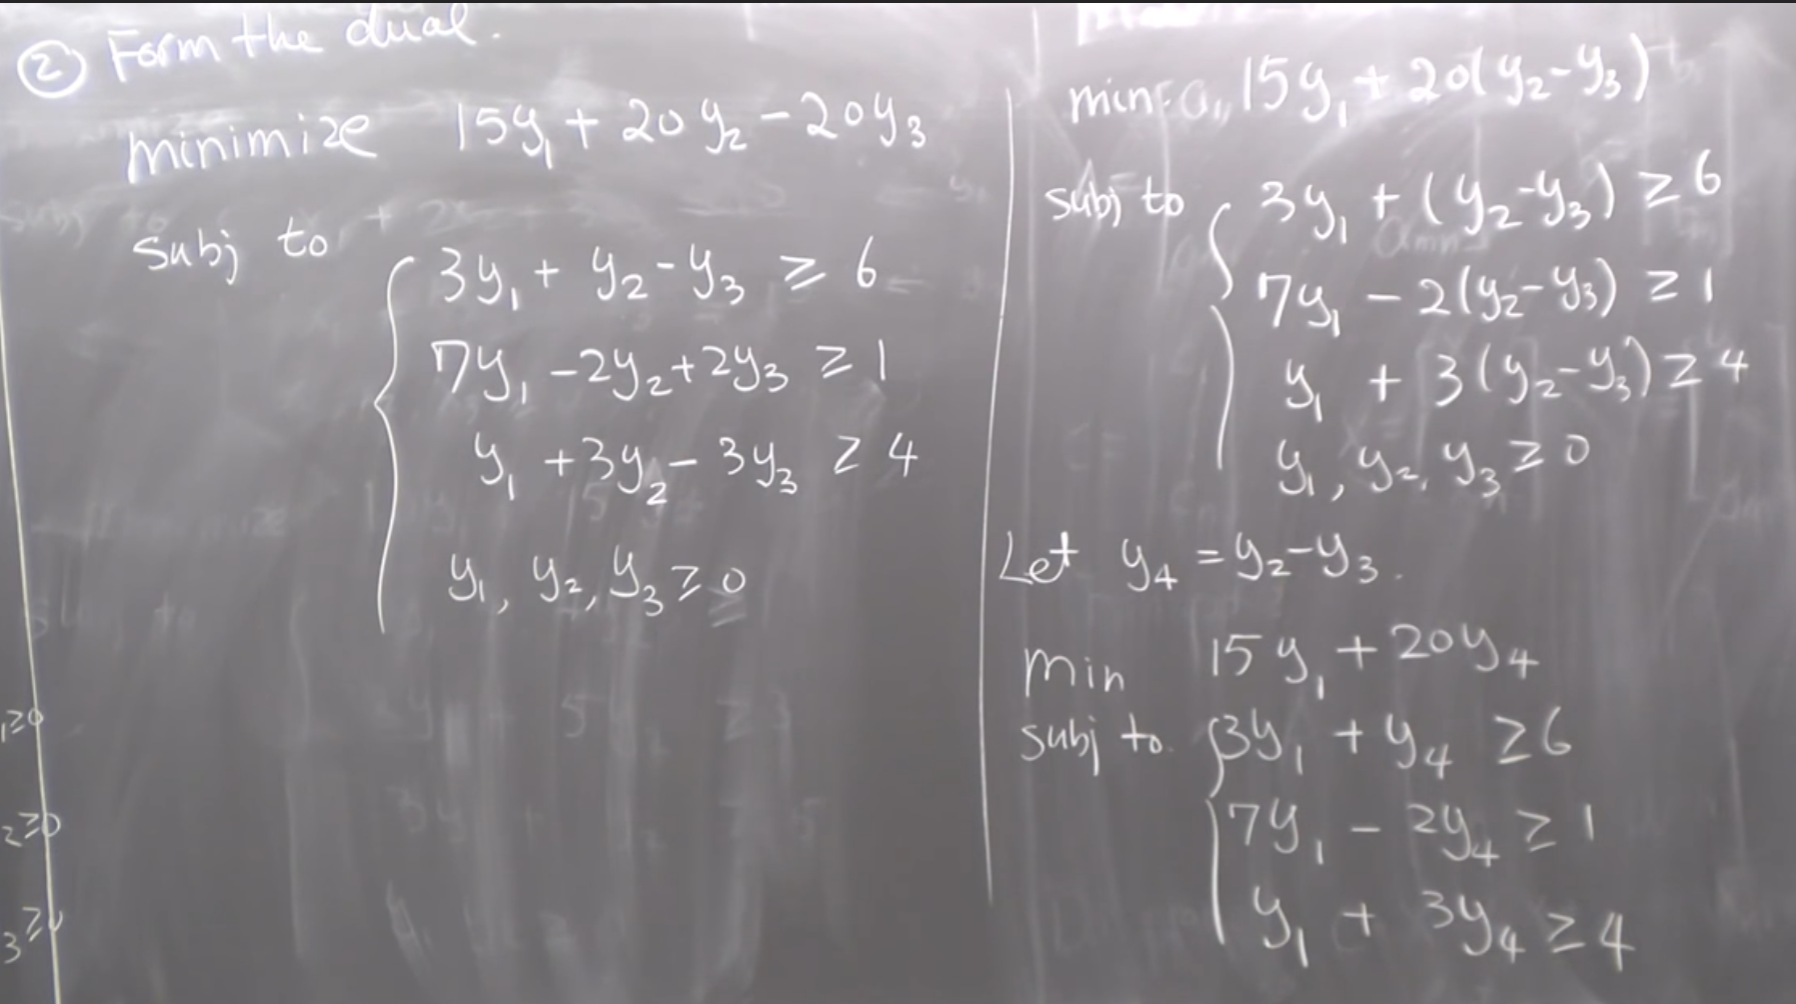 ② Form the dual.
minimize 15y₁ + 20y₂ - 20y₃
subj to
3y₁ + y₂ - y₃ ≥ 6
7y₁ - 2y₂ + 2y₃ ≥ 1
y₁ + 3y₂ - 3y₃ ≥ 4
y₁, y₂, y₃ ≥ 0
min. 15y₁ + 20(y₂ - y₃)
subj to 3y₁ + (y₂ - y₃) ≥ 6
7y₁ - 2(y₂ - y₃) ≥ 1
y₁ + 3(y₂ - y₃) ≥ 4
y₁, y₂, y₃ ≥ 0
Let y₄ = y₂ - y₃.
min 15y₁ + 20y₄
subj to. 3y₁ + y₄ ≥ 6
7y₁ - 2y₄ ≥ 1
y₁ + 3y₄ ≥ 4